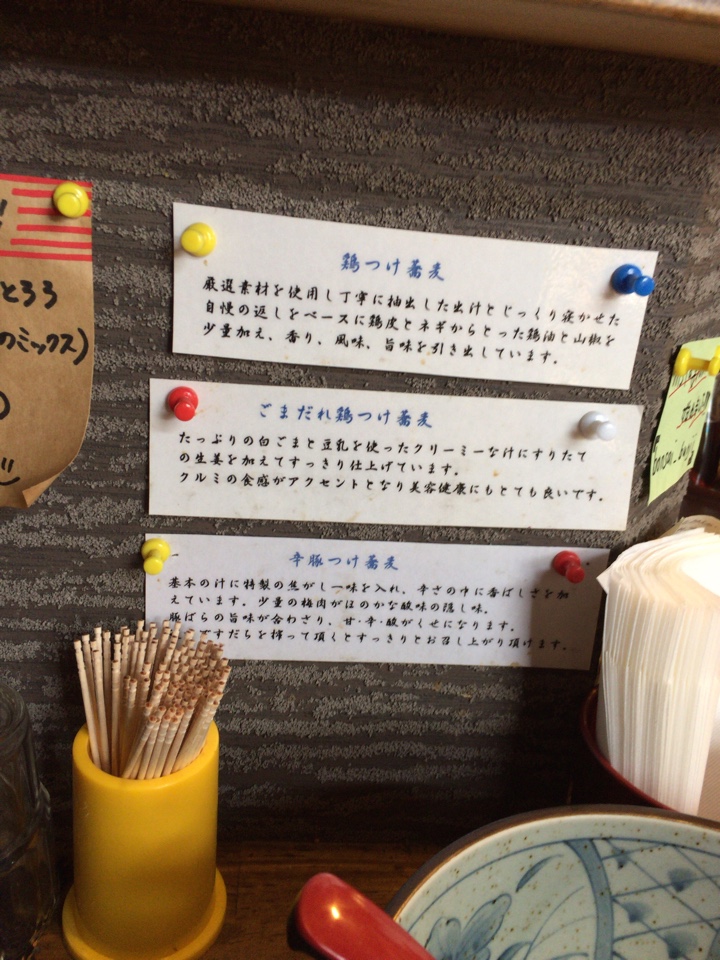 とろろ
のミックス)
鶏つけ蕎麦
厳選素材を使用し丁寧に抽出した出汁とじっくり寝かせた
自慢の返しをベースに鶏皮とネギからとった鶏油と山椒を
少量加え、香り、風味、旨味を引き出しています。
ごまだれ鶏つけ蕎麦
たっぷりの白ごまと豆乳を使ったクリーミーな汁にすりたて
の生姜を加えてすっきり仕上げています。
クルミの食感がアクセントとなり美容健康にもとても良いです。
辛豚つけ蕎麦
基本の汁に特製の焦がし一味を入れ、辛さの中に香ばしさを加
えています。少量の梅肉がほのかな酸味の隠し味。
豚ばらの旨味が合わさり、甘・辛・酸がくせになります。
すだちを搾って頂くとすっきりとお召し上がり頂けます。